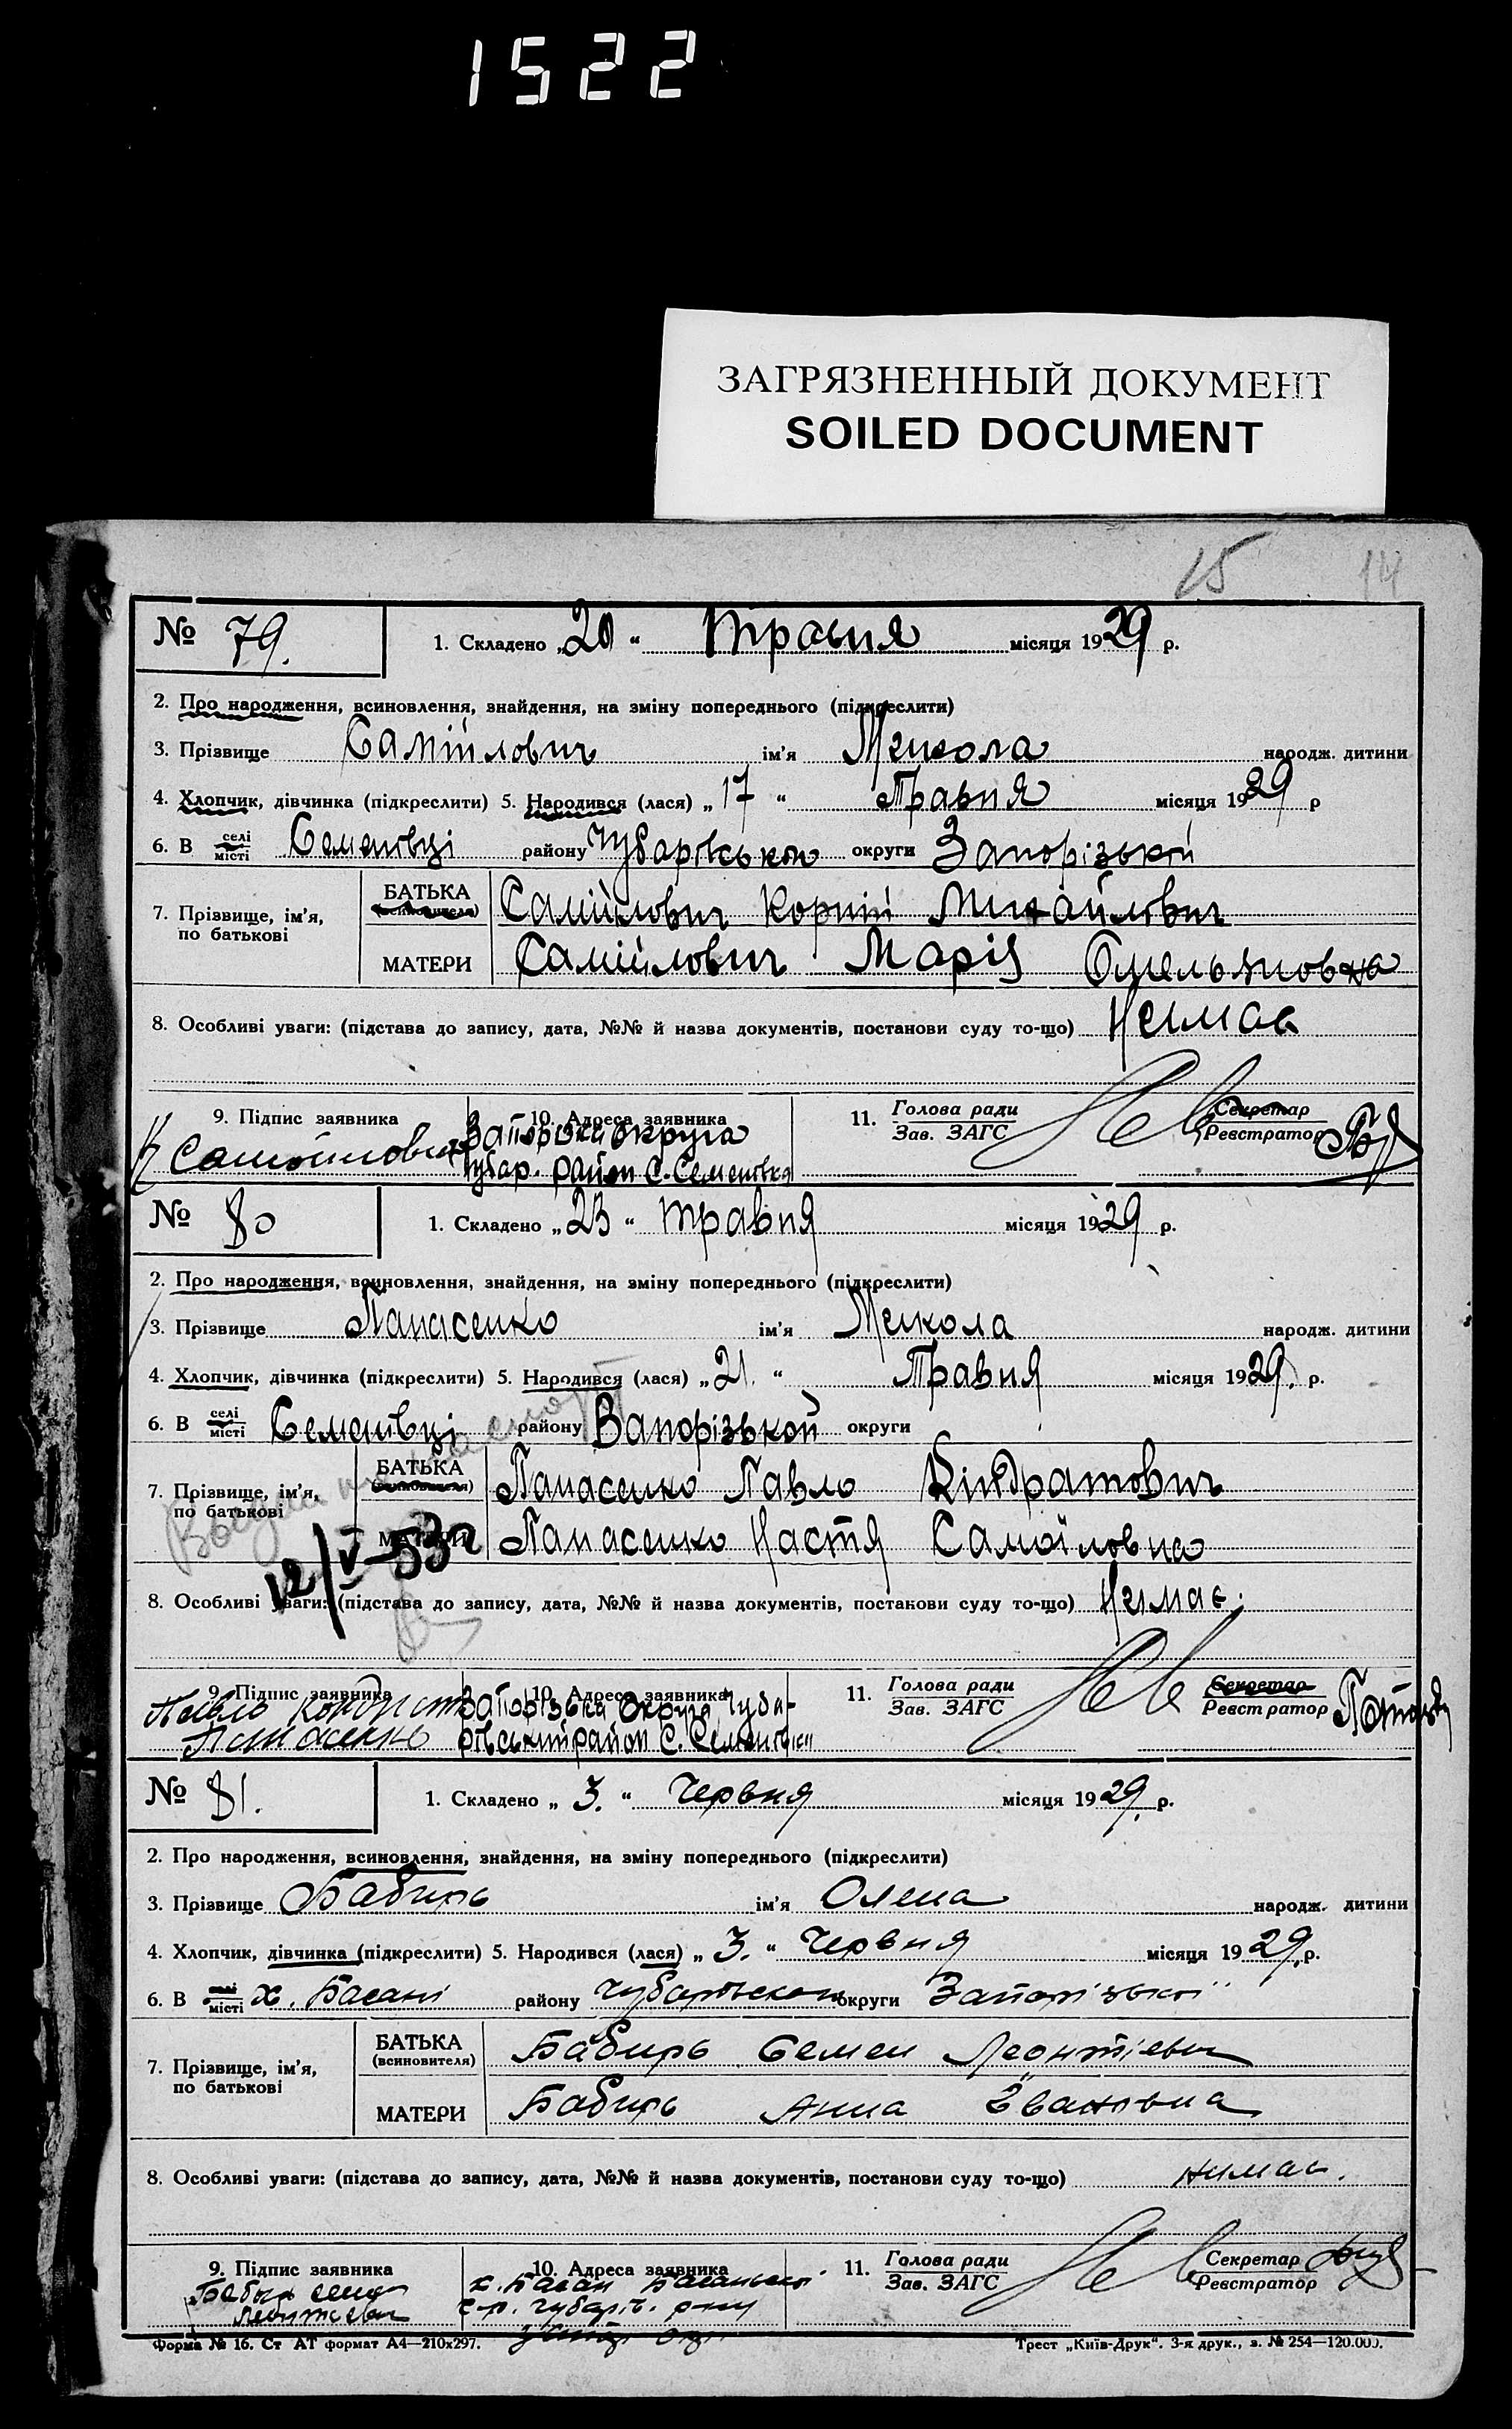 1522
ЗАГРЯЗНЕННЫЙ ДОКУМЕНТ
SOILED DOCUMENT
15 14
№ 79. 1. Складено „20“ травня місяця 1929 р.
2. Про народження, всиновлення, знайдення, на зміну попереднього (підкреслити)
3. Прізвище Самійлович ім'я Микола народж. дитини
4. Хлопчик, дівчинка (підкреслити) 5. Народився (лася) „17“ Травня місяця 1929 р
6. В селі місті Семенівці району Чубарівською округи Запорізькой
7. Прізвище, ім'я, по батькові БАТЬКА (всиновителя) Самійлович Корній Михайлович
МАТЕРИ Самійлович Марія Омельяновна
8. Особливі уваги: (підстава до запису, дата, №№ й назва документів, постанови суду то-що) Немає
9. Підпис заявника 10. Адреса заявника 11. Голова ради Секретар
Зав. ЗАГС Реєстратор
Самойлович Запорізька округа
Чубар. район С. Семенівка
№ 80 1. Складено „23“ травня місяця 1929 р.
2. Про народження, всиновлення, знайдення, на зміну попереднього (підкреслити)
3. Прізвище Панасенко ім'я Микола народж. дитини
4. Хлопчик, дівчинка (підкреслити) 5. Народився (лася) „21.“ Травня місяця 1929. р.
6. В селі місті Семенівці району Запорізькой округи
7. Прізвище, ім'я, по батькові БАТЬКА (всиновителя) Панасенко Павло Кіндратович
МАТЕРИ Панасенко Настя Самойловна
12/V-53г
8. Особливі уваги: (підстава до запису, дата, №№ й назва документів, постанови суду то-що) Немає.
9. Підпис заявника 10. Адреса заявника 11. Голова ради Секретар
Зав. ЗАГС Реєстратор
Запорізька округа Чуба-
рівський район С. Семенівки
№ 81. 1. Складено „3.“ Червня місяця 1929. р.
2. Про народження, всиновлення, знайдення, на зміну попереднього (підкреслити)
3. Прізвище Бабирь ім'я Олена народж. дитини
4. Хлопчик, дівчинка (підкреслити) 5. Народився (лася) „3.“ Червня місяця 1929. р.
6. В селі місті х. Басані району Чубарівском округи Запорізької
7. Прізвище, ім'я, по батькові БАТЬКА (всиновителя) Бабирь Семен Леонтієвич
МАТЕРИ Бабирь Анна Івановна
8. Особливі уваги: (підстава до запису, дата, №№ й назва документів, постанови суду то-що) нимає.
9. Підпис заявника 10. Адреса заявника 11. Голова ради Секретар
Зав. ЗАГС Реєстратор
х. Басан
Форма № 16. Ст АТ формат А4—210x297. Трест „Київ-Друк“. 3-я друк., з. № 254—120.000.